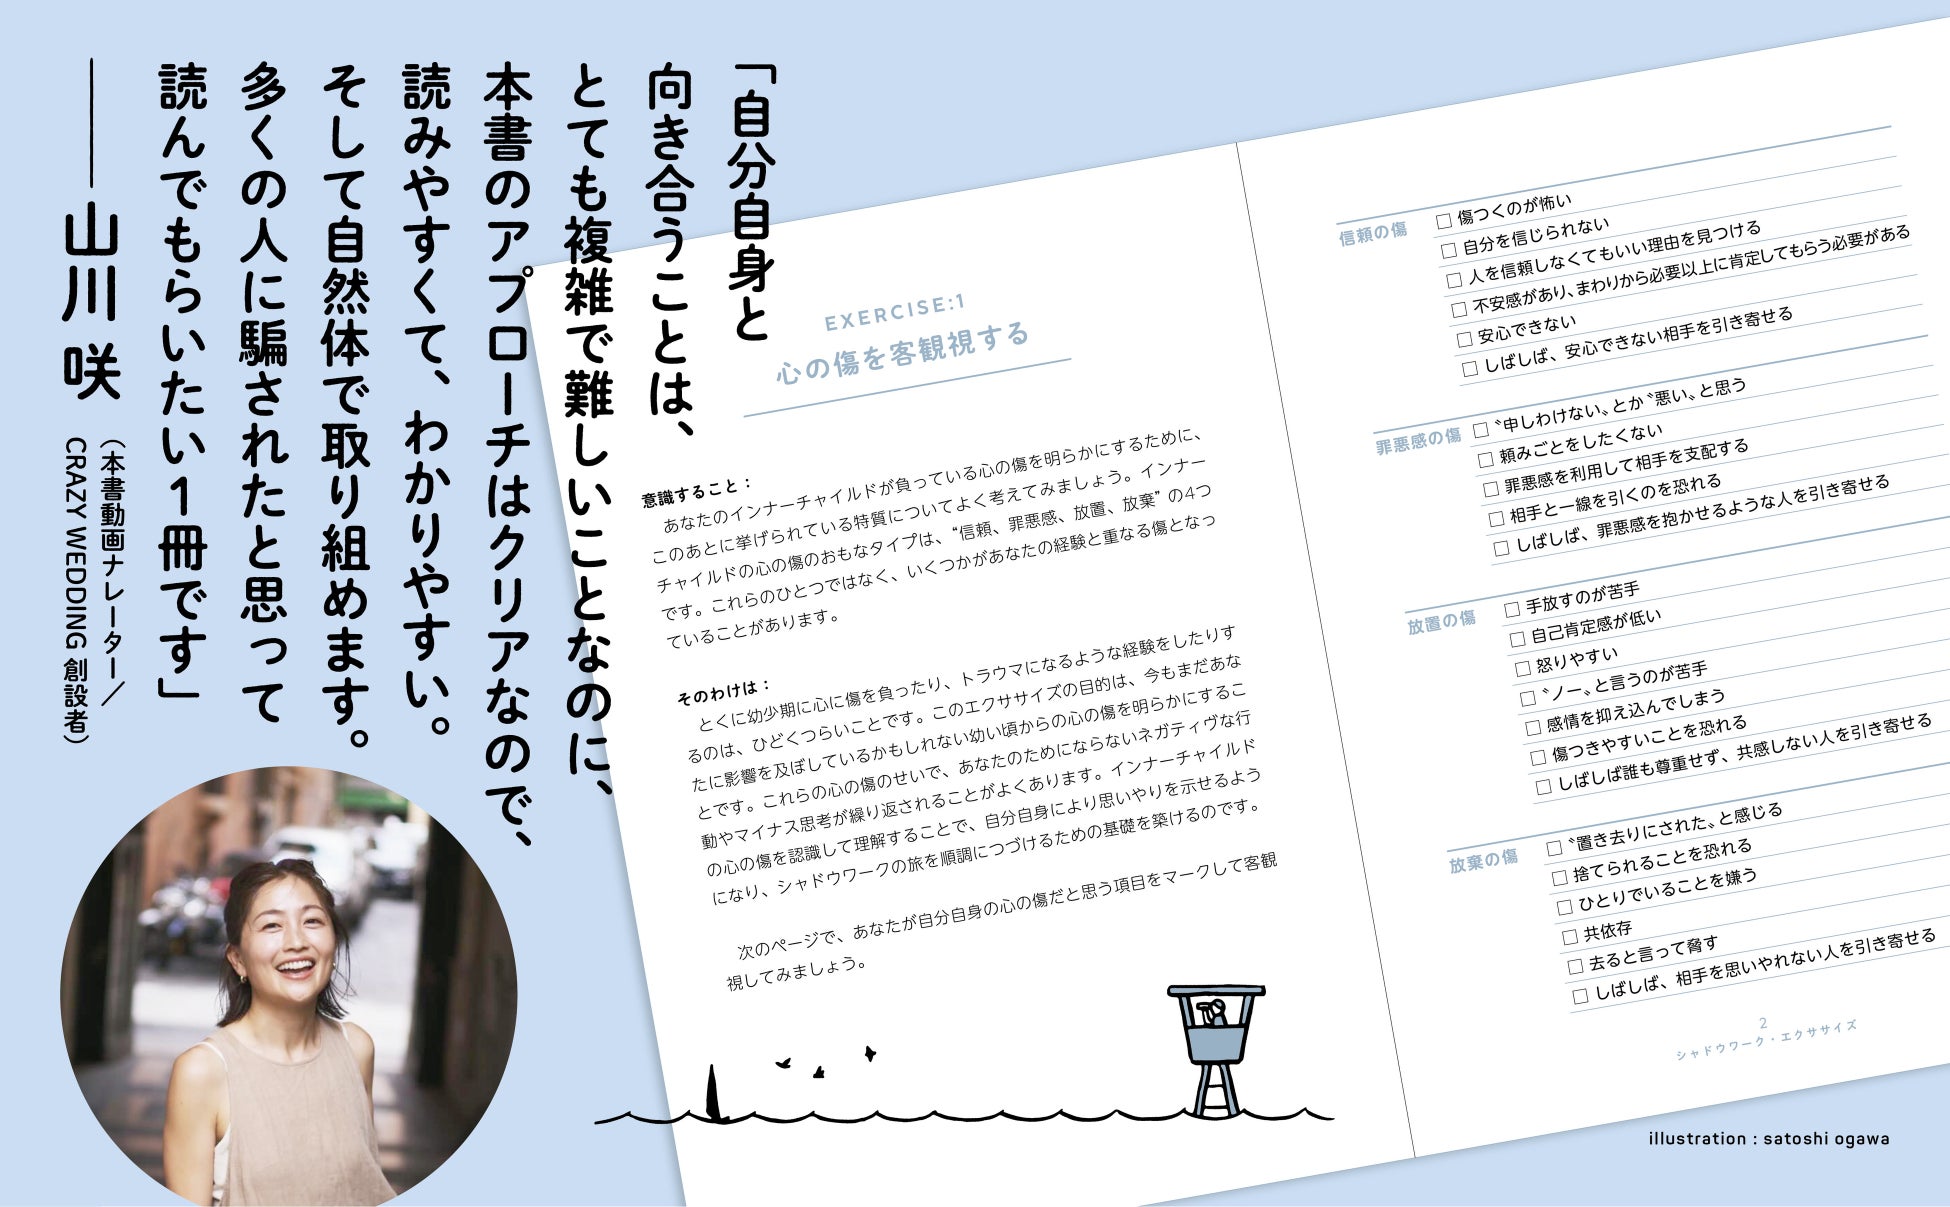 「自分自身と
向き合うことは、
とても複雑で難しいことなのに、
本書のアプローチはクリアなので、
読みやすくて、わかりやすい。
そして自然体で取り組めます。
多くの人に騙されたと思って
読んでもらいたい1冊です」
山川 咲
（本書動画ナレーター／
CRAZY WEDDING 創設者）
EXERCISE:1
心の傷を客観視する
意識すること：
あなたのインナーチャイルドが負っている心の傷を明らかにするために、
このあとに挙げられている特質についてよく考えてみましょう。インナー
チャイルドの心の傷のおもなタイプは、“信頼、罪悪感、放置、放棄”の4つ
です。これらのひとつではなく、いくつかがあなたの経験と重なる傷となっ
ていることがあります。
そのわけは：
とくに幼少期に心に傷を負ったり、トラウマになるような経験をしたりす
るのは、ひどくつらいことです。このエクササイズの目的は、今もまだあな
たに影響を及ぼしているかもしれない幼い頃からの心の傷を明らかにするこ
とです。これらの心の傷のせいで、あなたのためにならないネガティヴな行
動やマイナス思考が繰り返されることがよくあります。インナーチャイルド
の心の傷を認識して理解することで、自分自身により思いやりを示せるよう
になり、シャドウワークの旅を順調につづけるための基礎を築けるのです。
次のページで、あなたが自分自身の心の傷だと思う項目をマークして客観
視してみましょう。
信頼の傷
□ 傷つくのが怖い
□ 自分を信じられない
□ 人を信頼しなくてもいい理由を見つける
□ 不安感があり、まわりから必要以上に肯定してもらう必要がある
□ 安心できない
□ しばしば、安心できない相手を引き寄せる
罪悪感の傷
□ 〝申しわけない〟とか〝悪い〟と思う
□ 頼みごとをしたくない
□ 罪悪感を利用して相手を支配する
□ 相手と一線を引くのを恐れる
□ しばしば、罪悪感を抱かせるような人を引き寄せる
放置の傷
□ 手放すのが苦手
□ 自己肯定感が低い
□ 怒りやすい
□ 〝ノー〟と言うのが苦手
□ 感情を抑え込んでしまう
□ 傷つきやすいことを恐れる
□ しばしば誰も尊重せず、共感しない人を引き寄せる
放棄の傷
□ 〝置き去りにされた〟と感じる
□ 捨てられることを恐れる
□ ひとりでいることを嫌う
□ 共依存
□ 去ると言って脅す
□ しばしば、相手を思いやれない人を引き寄せる
2
シャドウワーク・エクササイズ
illustration : satoshi ogawa